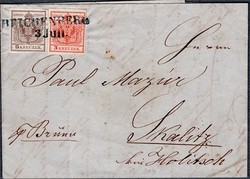 REICHENBERG
3 Jun.
6 KREUZER
3 KREUZER
Herrn
Paul Mazür
Skalitz
bei Holitsch
p Brünn